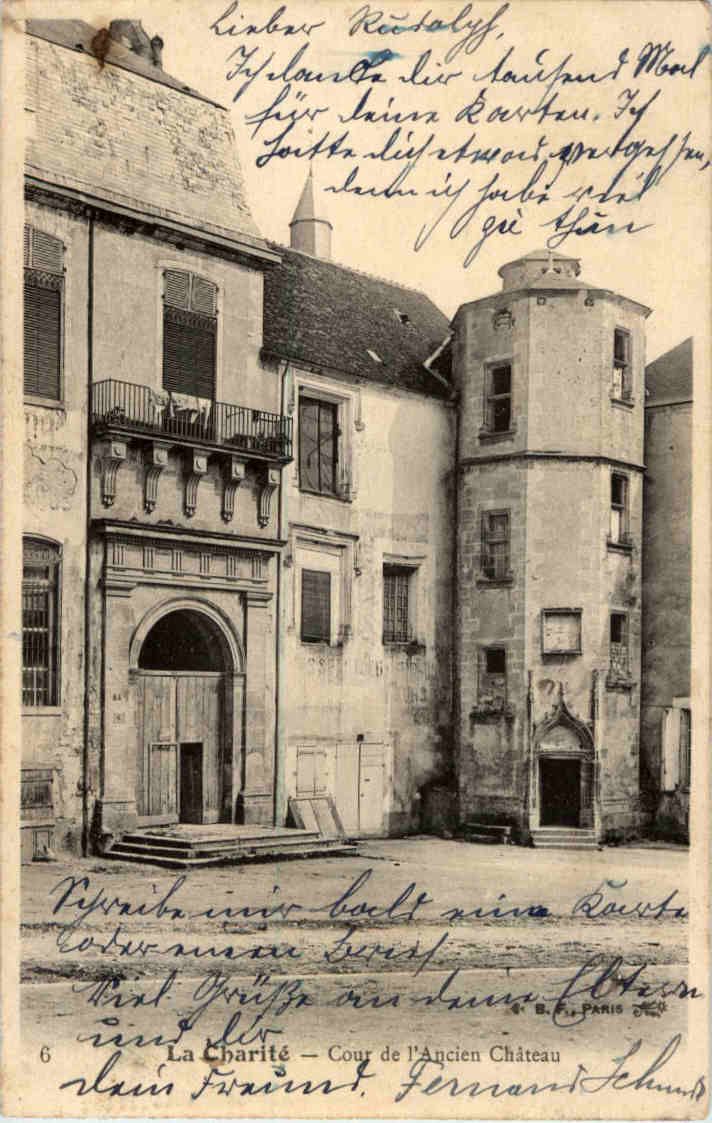 Lieber Rudolph,
Ich danke dir tausend Mal
für deine Karten. Ich
hatte dich etwas vergessen,
denn ich habe viel
zu thun
Schreibe mir bald eine Karte
oder einen Brief
Viel Grüße an deine Eltern
und dir
B. F., PARIS
6 La Charité – Cour de l'Ancien Château
dein Freund. Fernand Schmidt